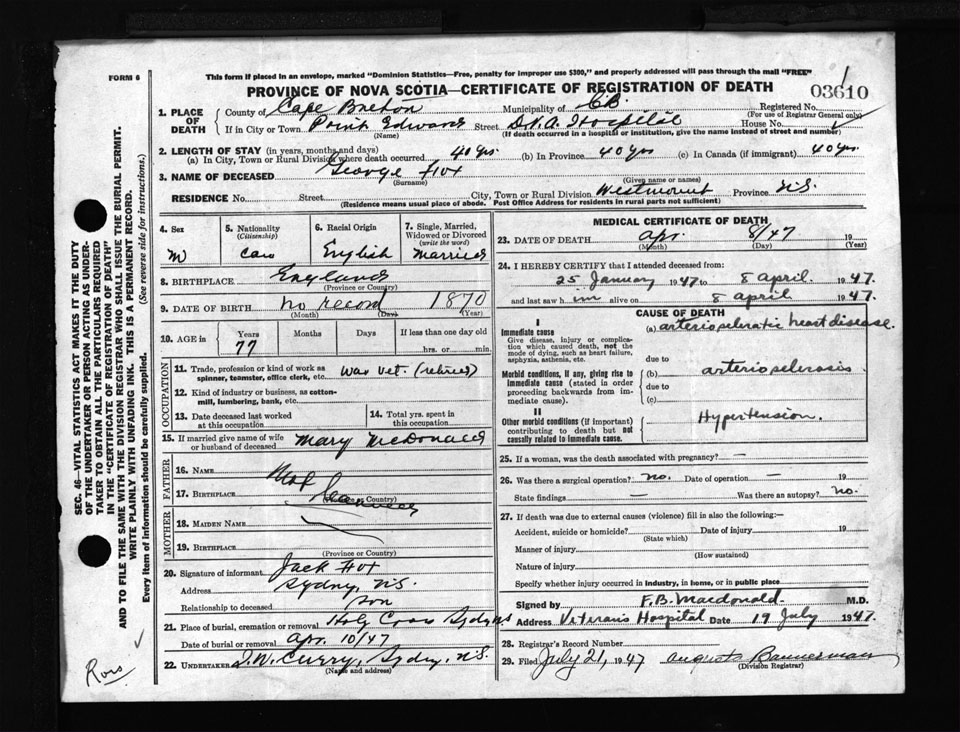 FORM 6
This form if placed in an envelope, marked "Dominion Statistics—Free, penalty for improper use $300," and properly addressed will pass through the mail "FREE"
PROVINCE OF NOVA SCOTIA—CERTIFICATE OF REGISTRATION OF DEATH
03610
1. PLACE OF DEATH
County of Cape Breton Municipality of C.B. Registered No.
(For use of Registrar General only)
If in City or Town Point Edward Street D.V.A. Hospital House No.
(Name) (If death occurred in a hospital or institution, give the name instead of street and number)
2. LENGTH OF STAY (in years, months and days)
(a) In City, Town or Rural Division where death occurred 40 yrs. (b) In Province 40 yrs (c) In Canada (if immigrant) 40 yrs.
3. NAME OF DECEASED George
(Surname) (Given name or names)
RESIDENCE No. Street City, Town or Rural Division Westmount Province N.S.
(Residence means usual place of abode. Post Office Address for residents in rural parts not sufficient)
4. Sex
M
5. Nationality
(Citizenship)
Can
6. Racial Origin
English
7. Single, Married, Widowed or Divorced
(write the word)
Married
8. BIRTHPLACE England
(Province or Country)
9. DATE OF BIRTH no record 1870
(Month) (Day) (Year)
10. AGE in
Years Months Days If less than one day old
77 hrs. or min.
OCCUPATION
11. Trade, profession or kind of work as spinner, teamster, office clerk, etc. War Vet. (retired)
12. Kind of industry or business, as cotton-mill, lumbering, bank, etc.
13. Date deceased last worked at this occupation
14. Total yrs. spent in this occupation
15. If married give name of wife or husband of deceased Mary McDonald
FATHER
16. NAME
17. BIRTHPLACE
(Province or Country)
MOTHER
18. MAIDEN NAME
19. BIRTHPLACE
(Province or Country)
20. Signature of informant Jack
Address Sydney, N.S.
Relationship to deceased son
21. Place of burial, cremation or removal Holy Cross Sydney
Date of burial or removal Apr. 10/47
22. UNDERTAKER Curry, Sydney, N.S.
(Name and address)
MEDICAL CERTIFICATE OF DEATH
23. DATE OF DEATH Apr. 8/47 19
(Month) (Day) (Year)
24. I HEREBY CERTIFY that I attended deceased from:
25 January 1947 to 8 April 1947.
and last saw him alive on 8 April 1947.
CAUSE OF DEATH
I
Immediate cause
Give disease, injury or complication which caused death, not the mode of dying, such as heart failure, asphyxia, asthenia, etc.
(a) arteriosclerotic heart disease.
due to
Morbid conditions, if any, giving rise to immediate cause (stated in order proceeding backwards from immediate cause).
(b) arteriosclerosis
due to
(c)
II
Other morbid conditions (if important) contributing to death but not causally related to immediate cause.
Hypertension.
25. If a woman, was the death associated with pregnancy? —
26. Was there a surgical operation? no. Date of operation — 19
State findings — Was there an autopsy? no.
27. If death was due to external causes (violence) fill in also the following:—
Accident, suicide or homicide? Date of injury 19
(State which)
Manner of injury
(How sustained)
Nature of injury
Specify whether injury occurred in industry, in home, or in public place
Signed by F.B. Macdonald M.D.
Address Veterans Hospital Date 19 July 1947.
28. Registrar's Record Number
29. Filed July 21, 1947 Bannerman
(Division Registrar)
SEC. 46—VITAL STATISTICS ACT MAKES IT THE DUTY OF THE UNDERTAKER OR PERSON ACTING AS UNDERTAKER TO OBTAIN ALL THE PARTICULARS REQUIRED IN THE "CERTIFICATE OF REGISTRATION OF DEATH" AND TO FILE THE SAME WITH THE DIVISION REGISTRAR WHO SHALL ISSUE THE BURIAL PERMIT.
WRITE PLAINLY WITH UNFADING INK. THIS IS A PERMANENT RECORD.
Every item of information should be carefully supplied. (See reverse side for instructions.)